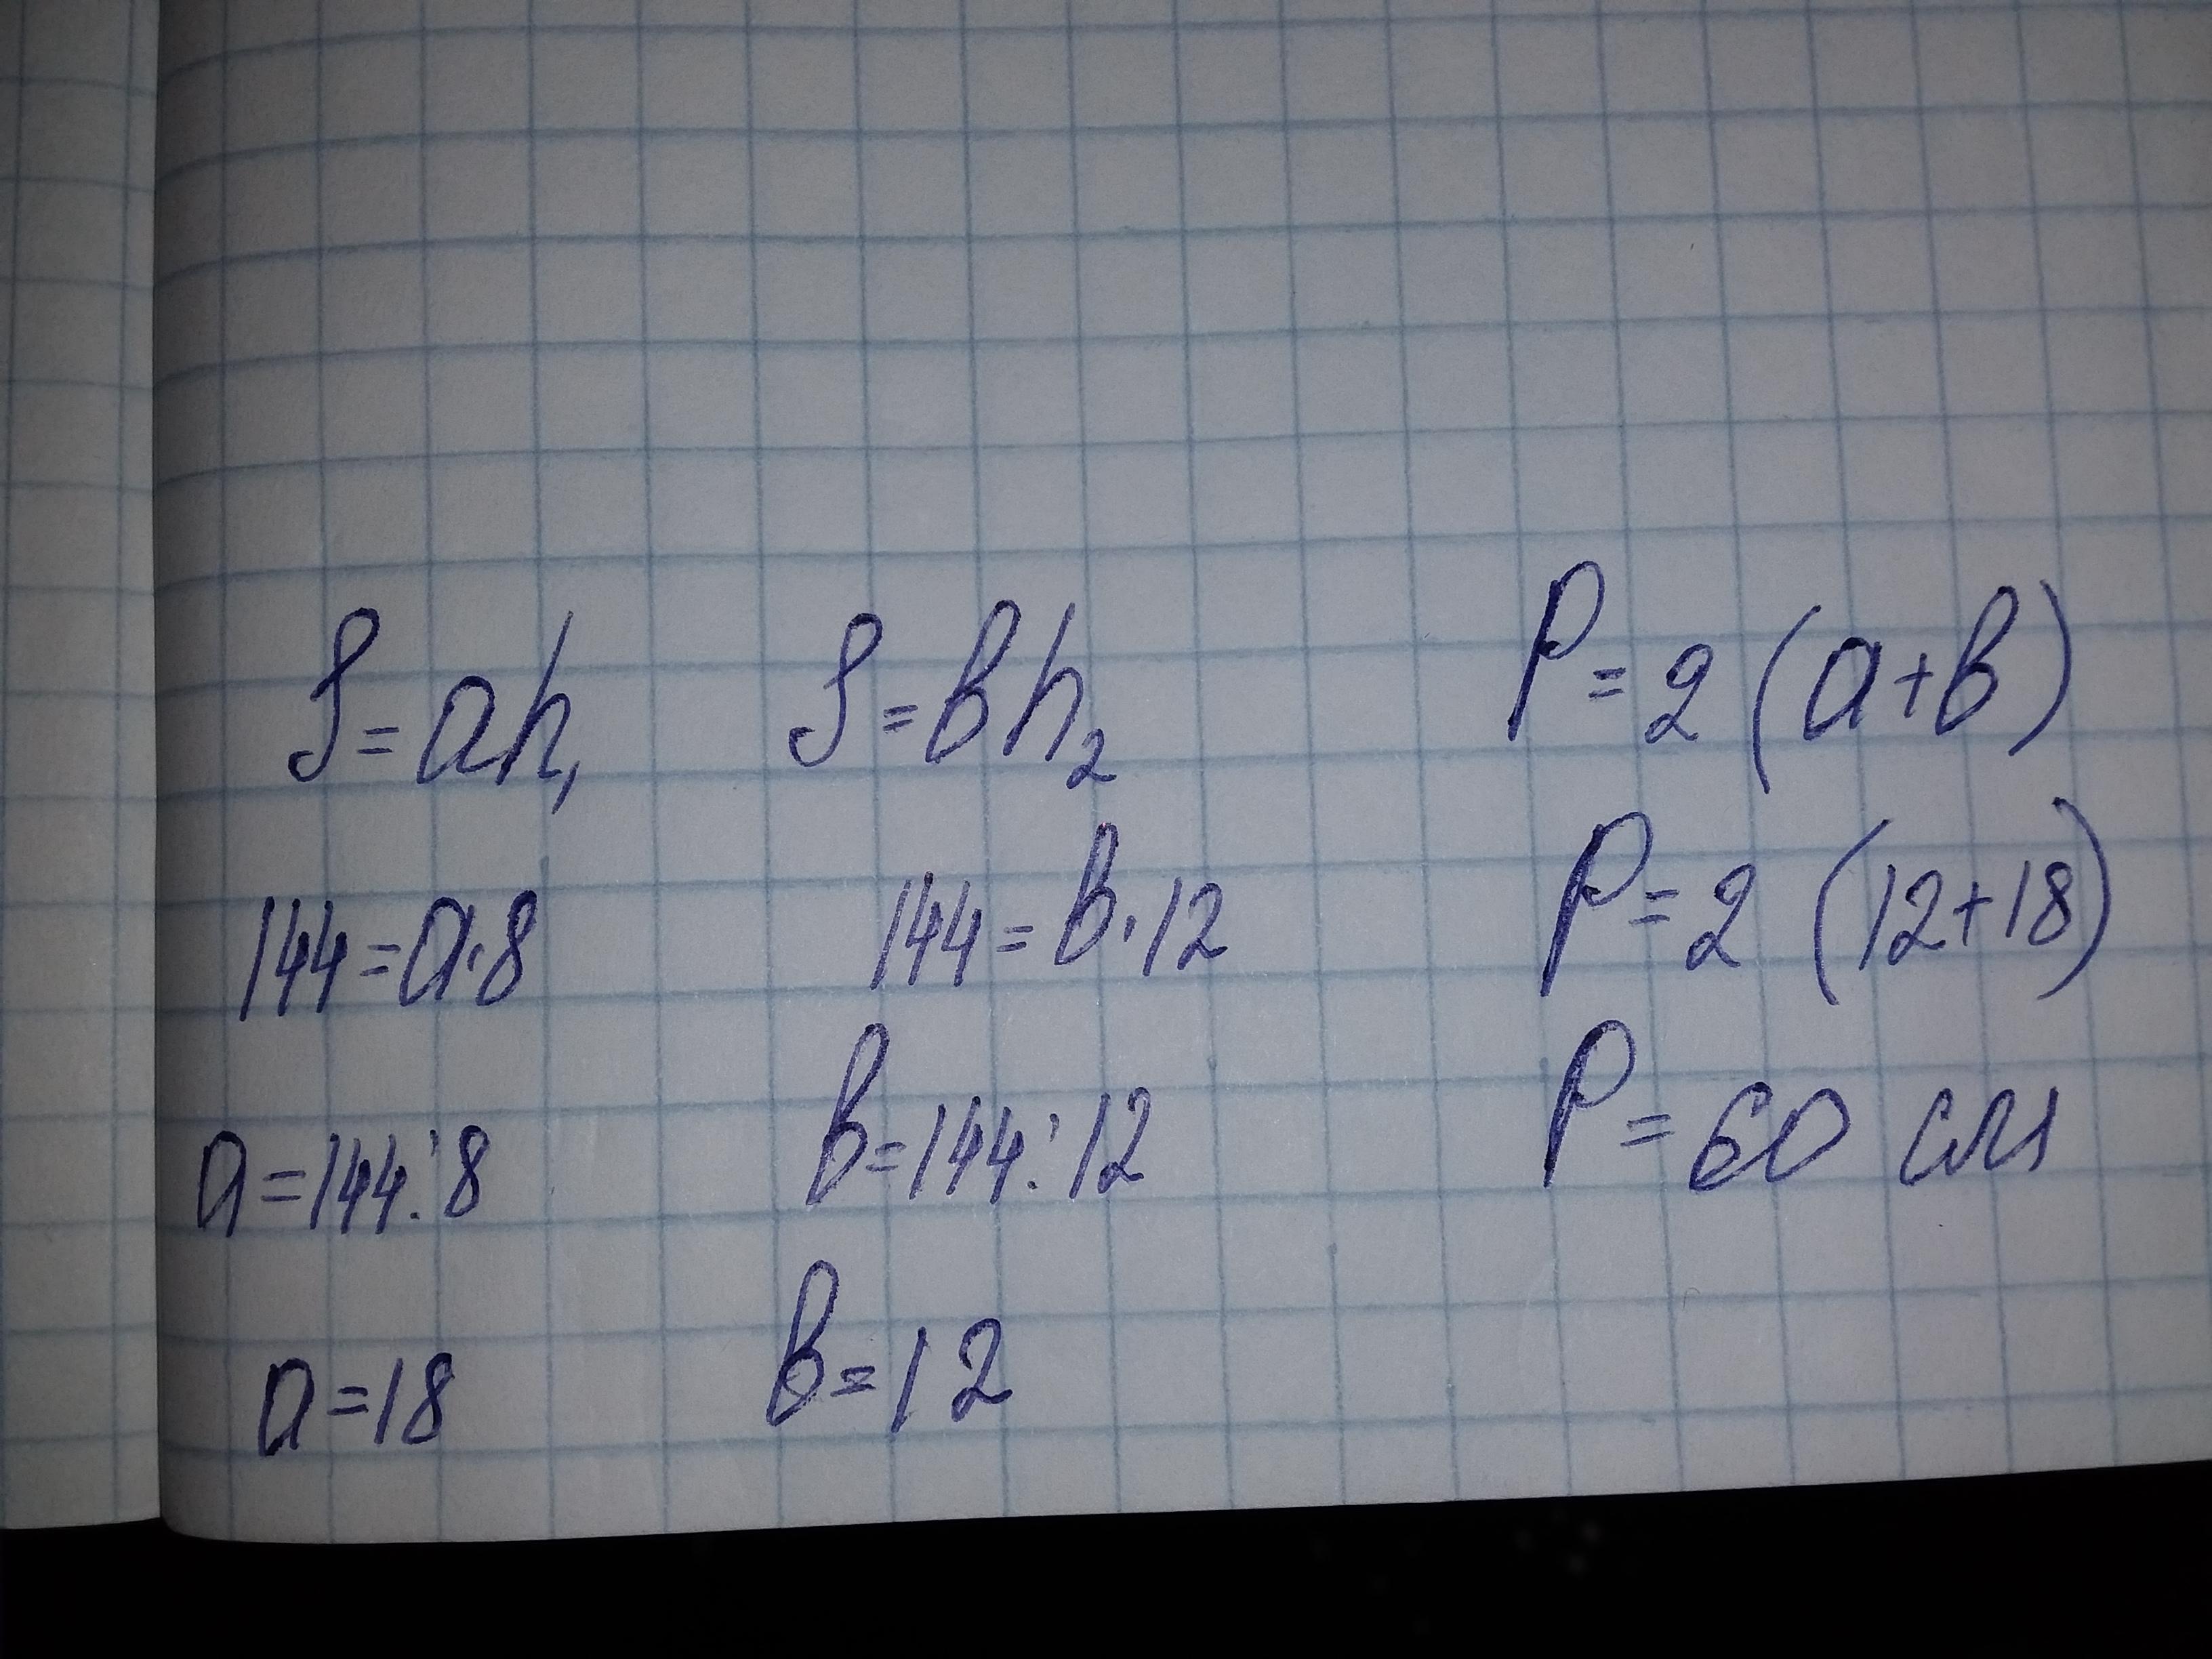 S=ah₁
144=a·8
a=144:8
a=18
S=bh₂
144=b·12
b=144:12
b=12
P=2(a+b)
P=2(12+18)
P=60 см